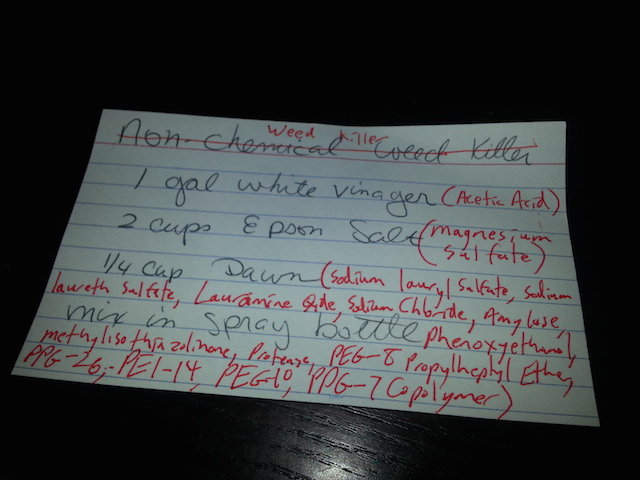 Weed Killer
Non-Chemical Weed Killer
1 gal white vinager (Acetic Acid)
2 cups Epson Salt (magnesium
sulfate)
1/4 cup Dawn (sodium lauryl sulfate, sodium
laureth sulfate, Lauramine Oxide, Sodium Chloride, Amylase,
mix in spray bottle phenoxyethanol,
methylisothiazolinone, Protease, PEG-8 Propylheptyl Ether,
PPG-26, PEI-14, PEG-10, PPG-7 Copolymer)